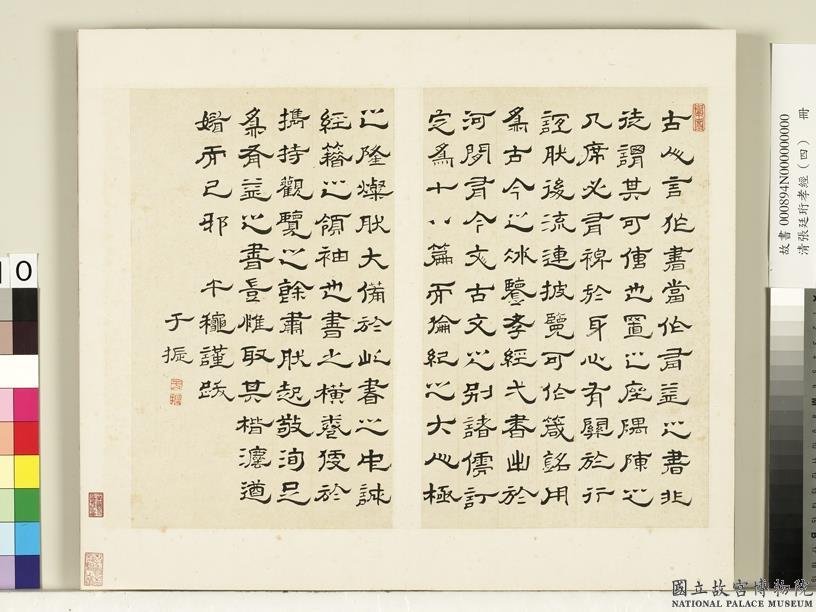 古人言作書當作有益之書非
徒謂其可傳也置之座隅陳之
几席必有裨於身心有關於行
誼肰後流連披覽可作箴銘用
為古今之冰鑒孝經弌書出於
河間有今文古文之別諸儒訂
定為十八篇而倫紀之大人極
之隆燦肰大備於此書之中誠
經籍之領袖也書之橫卷便於
攜持觀覽之餘肅肰起敬洵足
為有益之書豈惟取其楷灋遒
媚而已邪 謹跋
于振
故書 000894N000000000
清張廷珩孝經（四） 冊
國立故宮博物院
NATIONAL PALACE MUSEUM